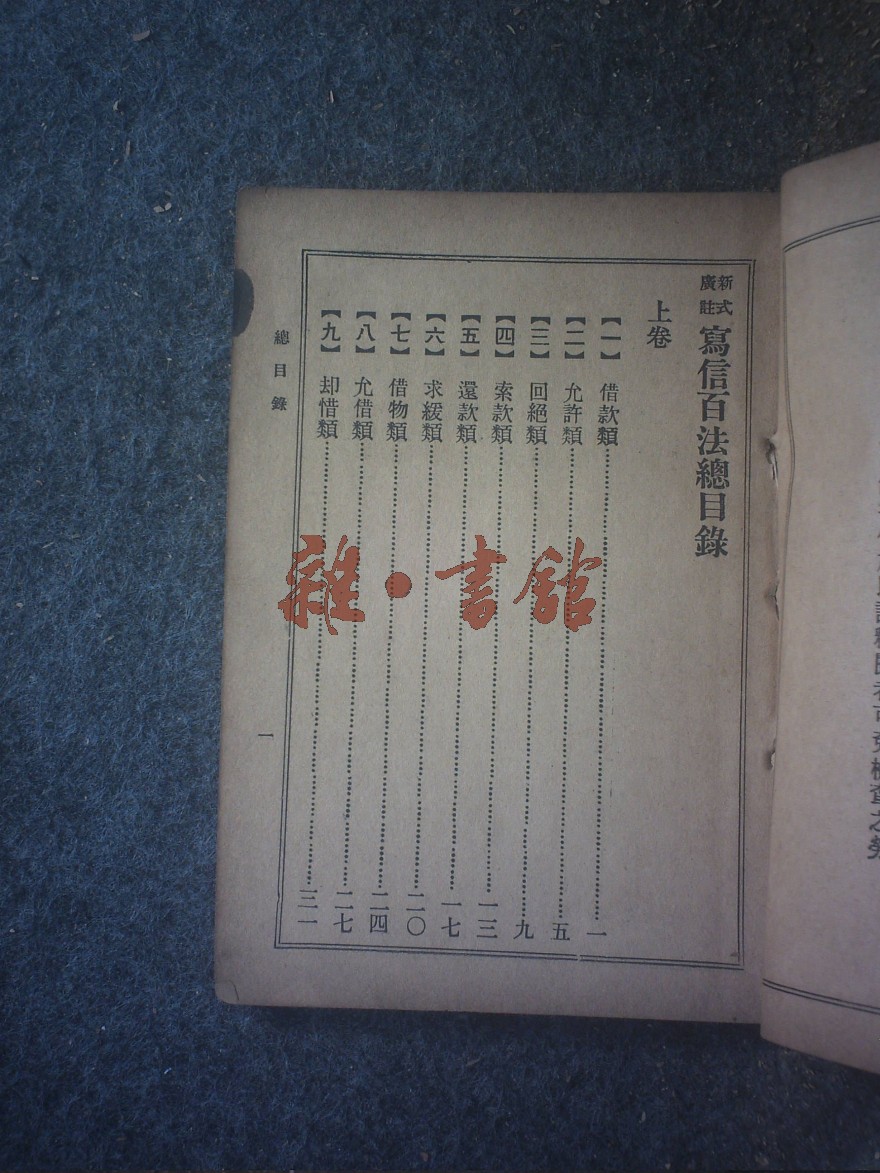 新式廣註 寫信百法總目錄
上卷
【一】 借款類……一
【二】 允許類……五
【三】 回絕類……九
【四】 索款類……一三
【五】 還款類……一七
【六】 求緩類……二〇
【七】 借物類……二四
【八】 允借類……二七
【九】 却惜類……三一
總目錄
一
雜·書館